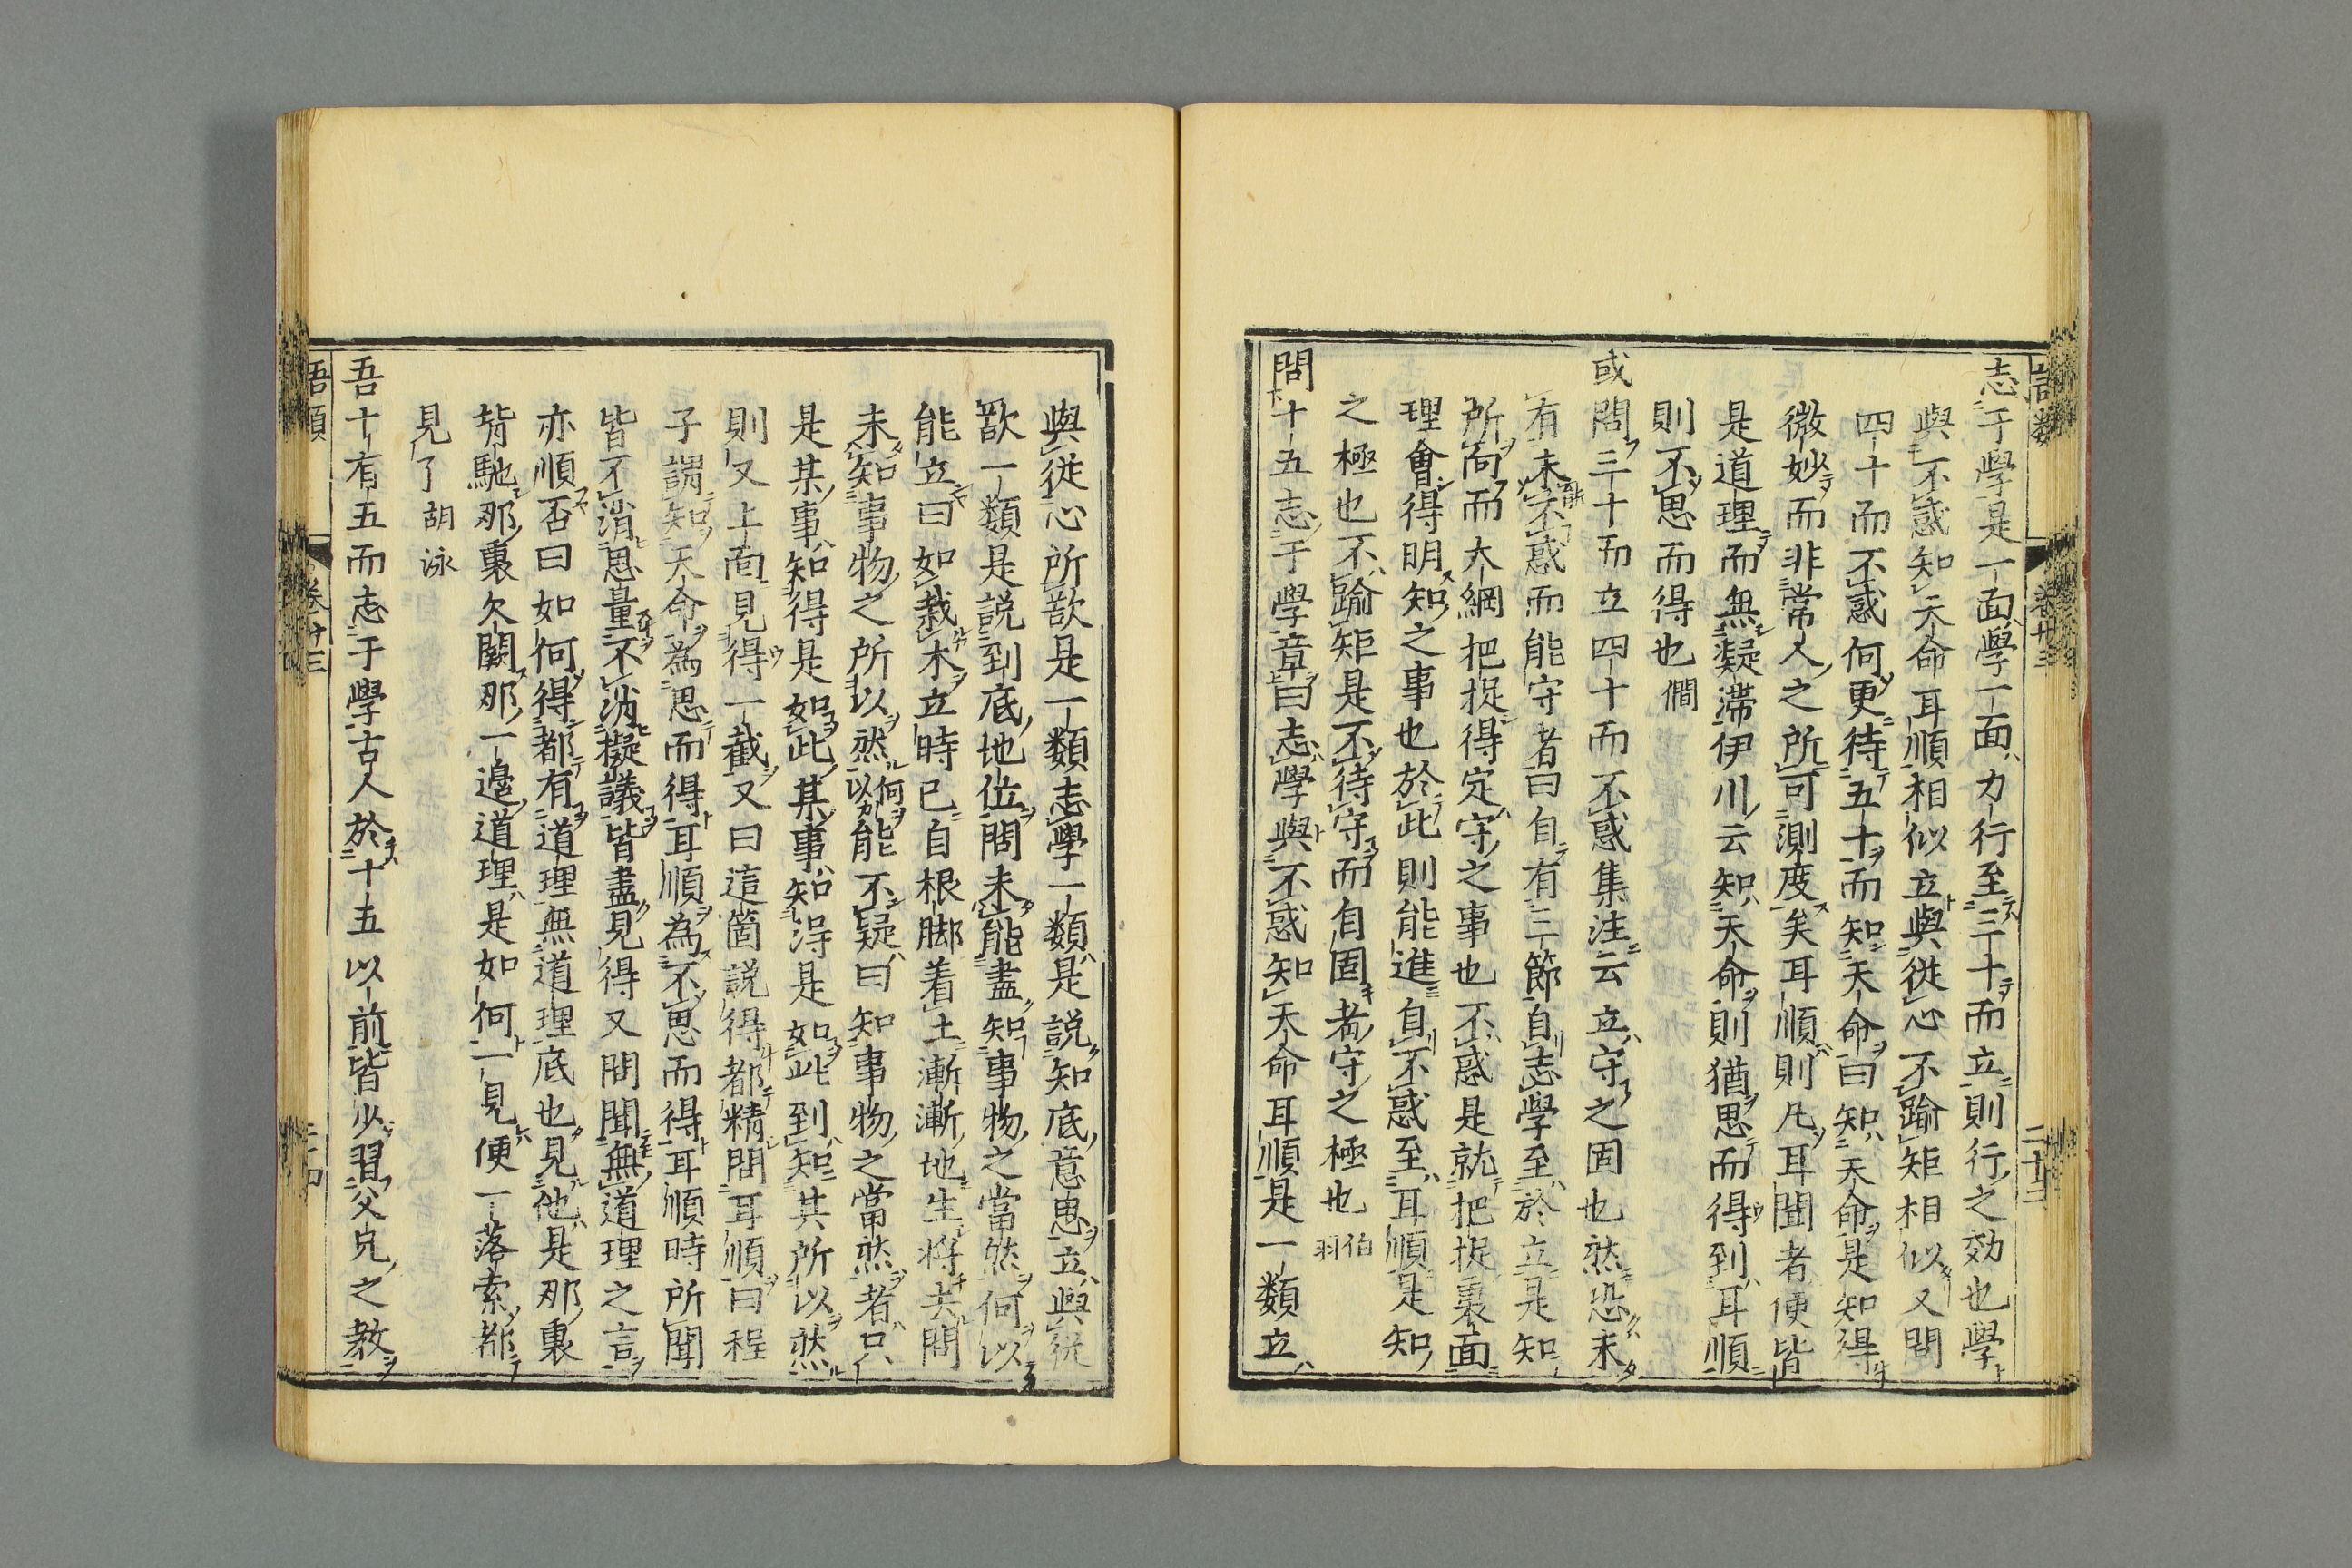 語類 卷廿三 二十三
志于學是一面學一面力行至三十而立則行之効也學
與不惑知天命耳順相似立與從心不踰矩相似又問
四十而不惑何更待五十而知天命曰知天命是知得
微妙而非常人之所可測度矣耳順則凡耳聞者便皆
是道理而無凝滯伊川云知天命則猶思而得到耳順
則不思而得也僩
或問三十而立四十而不惑集注云立守之固也然恐未
有未不惑而能守者曰自有三節自志學至於立是知
所向而大綱把捉得定守之事也不惑是就把捉裏面
理會得明知之事也於此則能進自不惑至耳順是知
之極也不踰矩是不待守而自固者守之極也伯羽
問十五志于學章曰志學與不惑知天命耳順是一類立
與從心所欲是一類志學一類是說知底意思立與從
欲一類是說到底地位問未能盡知事物之當然何以
能立曰如栽木立時已自根脚着土漸漸地生將去問
未知事物之所以然何以能不疑曰知事物之當然者只
是某事知得是如此某事知得是如此到知其所以然
則又上面見得一截又曰這箇說得都精問耳順曰程
子謂知天命爲思而得耳順爲不思而得耳順時所聞
皆不消思量不消擬議皆盡見得又問聞無道理之言
亦順否曰如何得都有道理無道理底也見他是那裏
背馳那裏欠闕那一邊道理是如何一見便一落索都
見了胡泳
吾十有五而志于學古人於十五以前皆少習父兄之教
語類 卷廿三 二十四